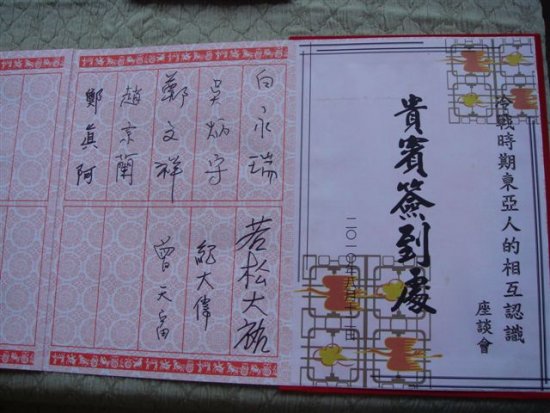 冷戰時期東亞人的相互認識
座談會
貴賓簽到處
二〇一〇年八月
白永瑞
吳炳守
鄭文祥
趙京蘭
鄭眞阿
若松大祐
紀大偉
曾天富